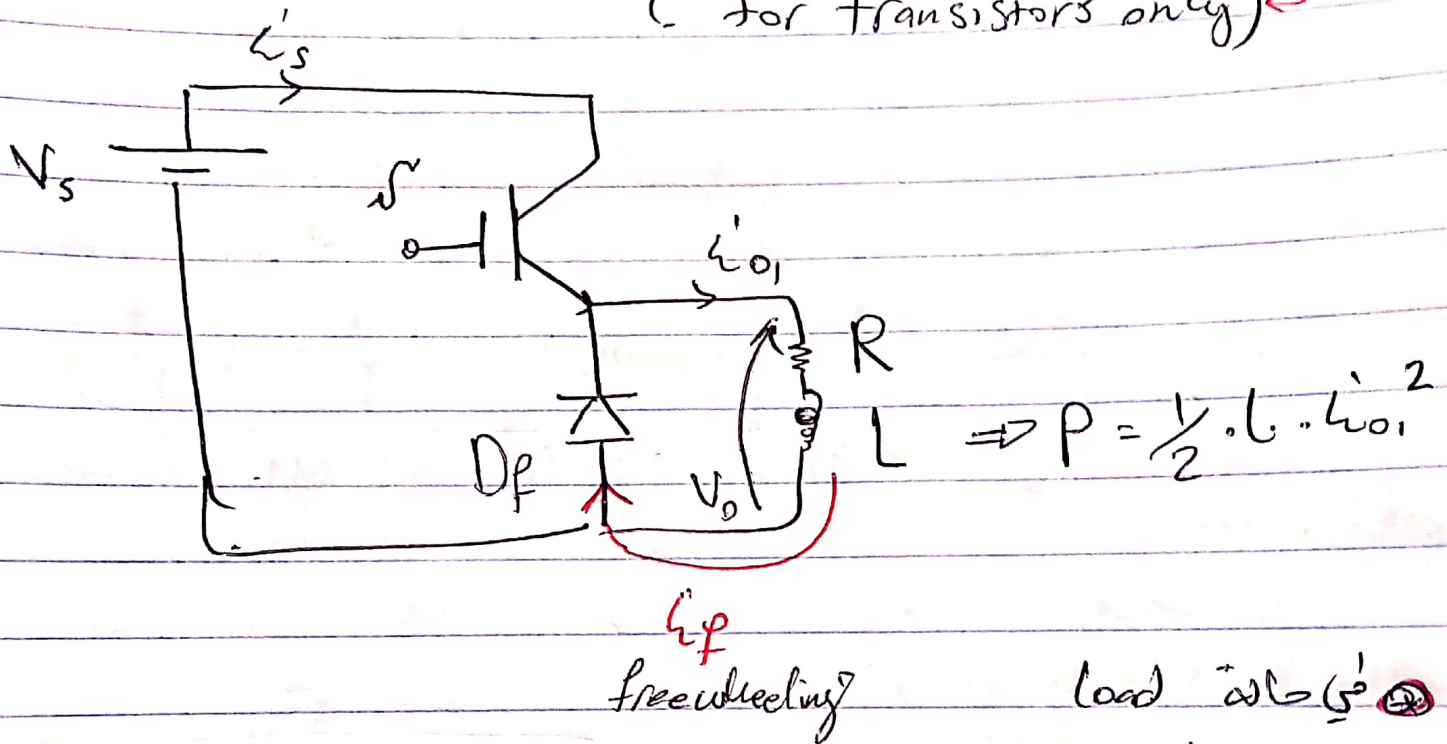 ( for transistors only)
is
Vs
S
io1
R
L ⇒ P = 1/2 . L . io1²
Df
Vo
if
freewheeling
load في حالة